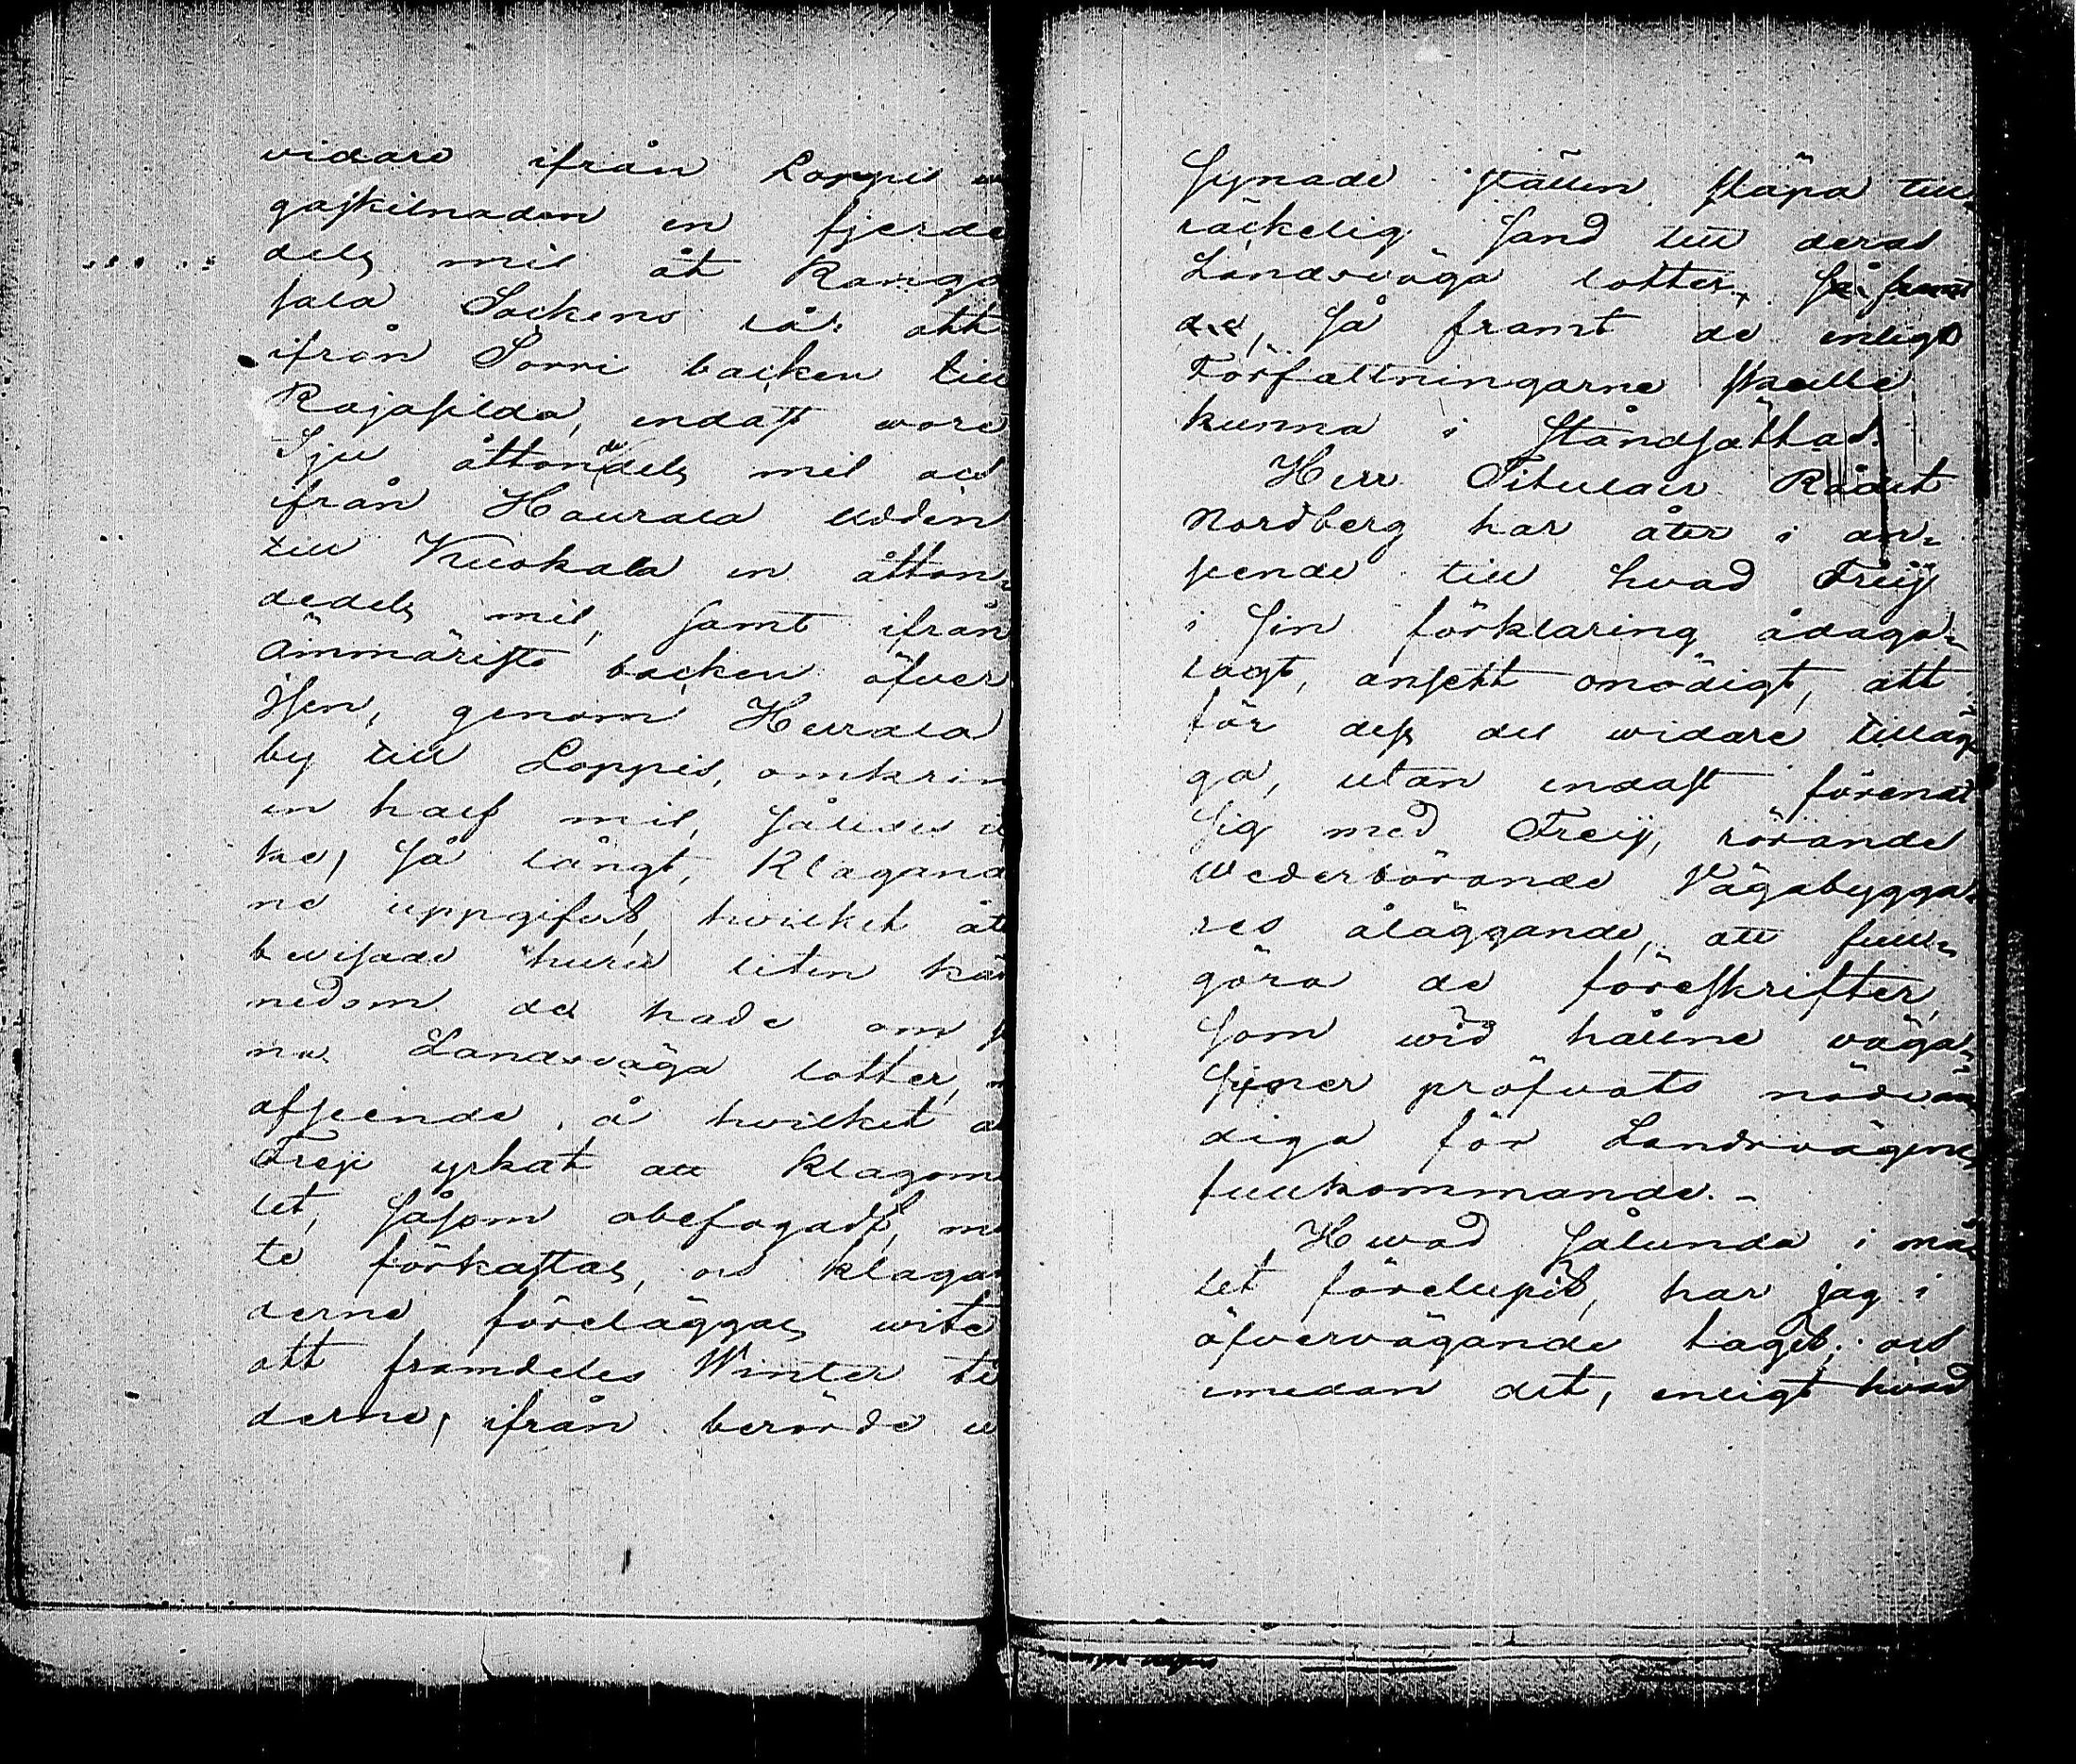 vidare ifrån Loppis
gaskilnaden en fjerde
dels mil åt Kanga
sala Sockens rå: att
ifrån Sorri backen till
Rajasilda, endast wore
Sju åttondedels mil och
ifrån Haurala udden
till Kuokala en åtton-
dedels mil, samt ifrån
Ämmäriste backen öfver
Isen, genom Herrala
by till Loppis, omkrin
en half mil, således i
ke, så långt, Klagand
ne uppgifvit, hvilket åt
bevisade huru liten kän
nedom de hade om
na Landsväga lotter,
afseende å hvilket
Freij yrkat att klagom
let, såsom obefogadt, m
te förkastas, och klagan
derne föreläggas wite
att framdeles Winter ti
derne, ifrån berörde
synade ställen släpa till-
räckelig sand till deras
Landsväga lotter, så framt
de, så framt de enligt
Författningarne skulle
kunna i ståndsättas.
Herr Titulair Rådet
Nordberg har åter i an-
seende till hvad Freij
i sin förklaring ådaga-
lagt, ansett onödigt, att
för dess del widare tilläg
ga, utan endast förenat
sig med Freij, rörande
Wederbörande Vägabygga-
res åläggande, att full-
göra de föreskrifter,
som wid hållne väga-
syner pröfvats nödvän
diga för Landsvägens
fullkommande.-
Hwad sålunda i må-
let förelupit, har jag i
öfvervägande tagit; och
emedan det, enligt hvad